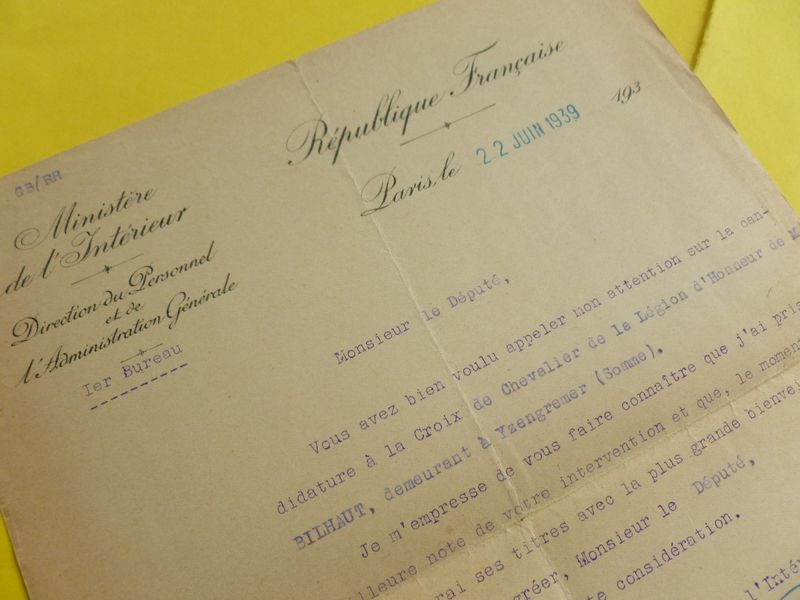 République Française
Paris, le 22 JUIN 1939 193
GB/RR
Ministère
de l'Intérieur
Direction du Personnel
et de
l'Administration Générale
Ier Bureau
Monsieur le Député,
Vous avez bien voulu appeler mon attention sur la can-
didature à la Croix de Chevalier de la Légion d'Honneur de M
BILHAUT, demeurant à Yzengremer (Somme).
Je m'empresse de vous faire connaître que j'ai pris
note de votre intervention et que, le moment
ses titres avec la plus grande
Monsieur le Député,
considération.